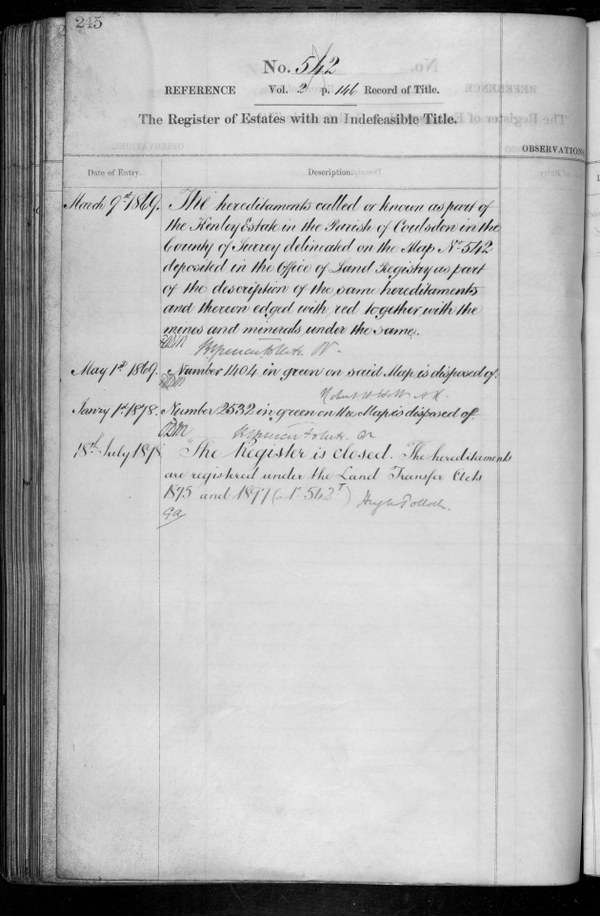 245
No. 542
REFERENCE Vol. 2 p. 146 Record of Title.
The Register of Estates with an Indefeasible Title.
OBSERVATION
Date of Entry. Description.
March 9th 1869. The hereditaments called or known as part of
the Kenley Estate in the Parish of Coulsdon in the
County of Surrey delineated on the Map No. 542
deposited in the Office of Land Registry as part
of the description of the same hereditaments
and thereon edged with red together with the
mines and minerals under the same.
May 1st 1869. Number 1404 in green on said Map is disposed of.
Janry 1st 1878. Number 2532 in green on the Map is disposed of
18th July 1898 The Register is closed. The hereditaments
are registered under the Land Transfer Acts
1875 and 1897 (No. 542T) Hugh Pollock.